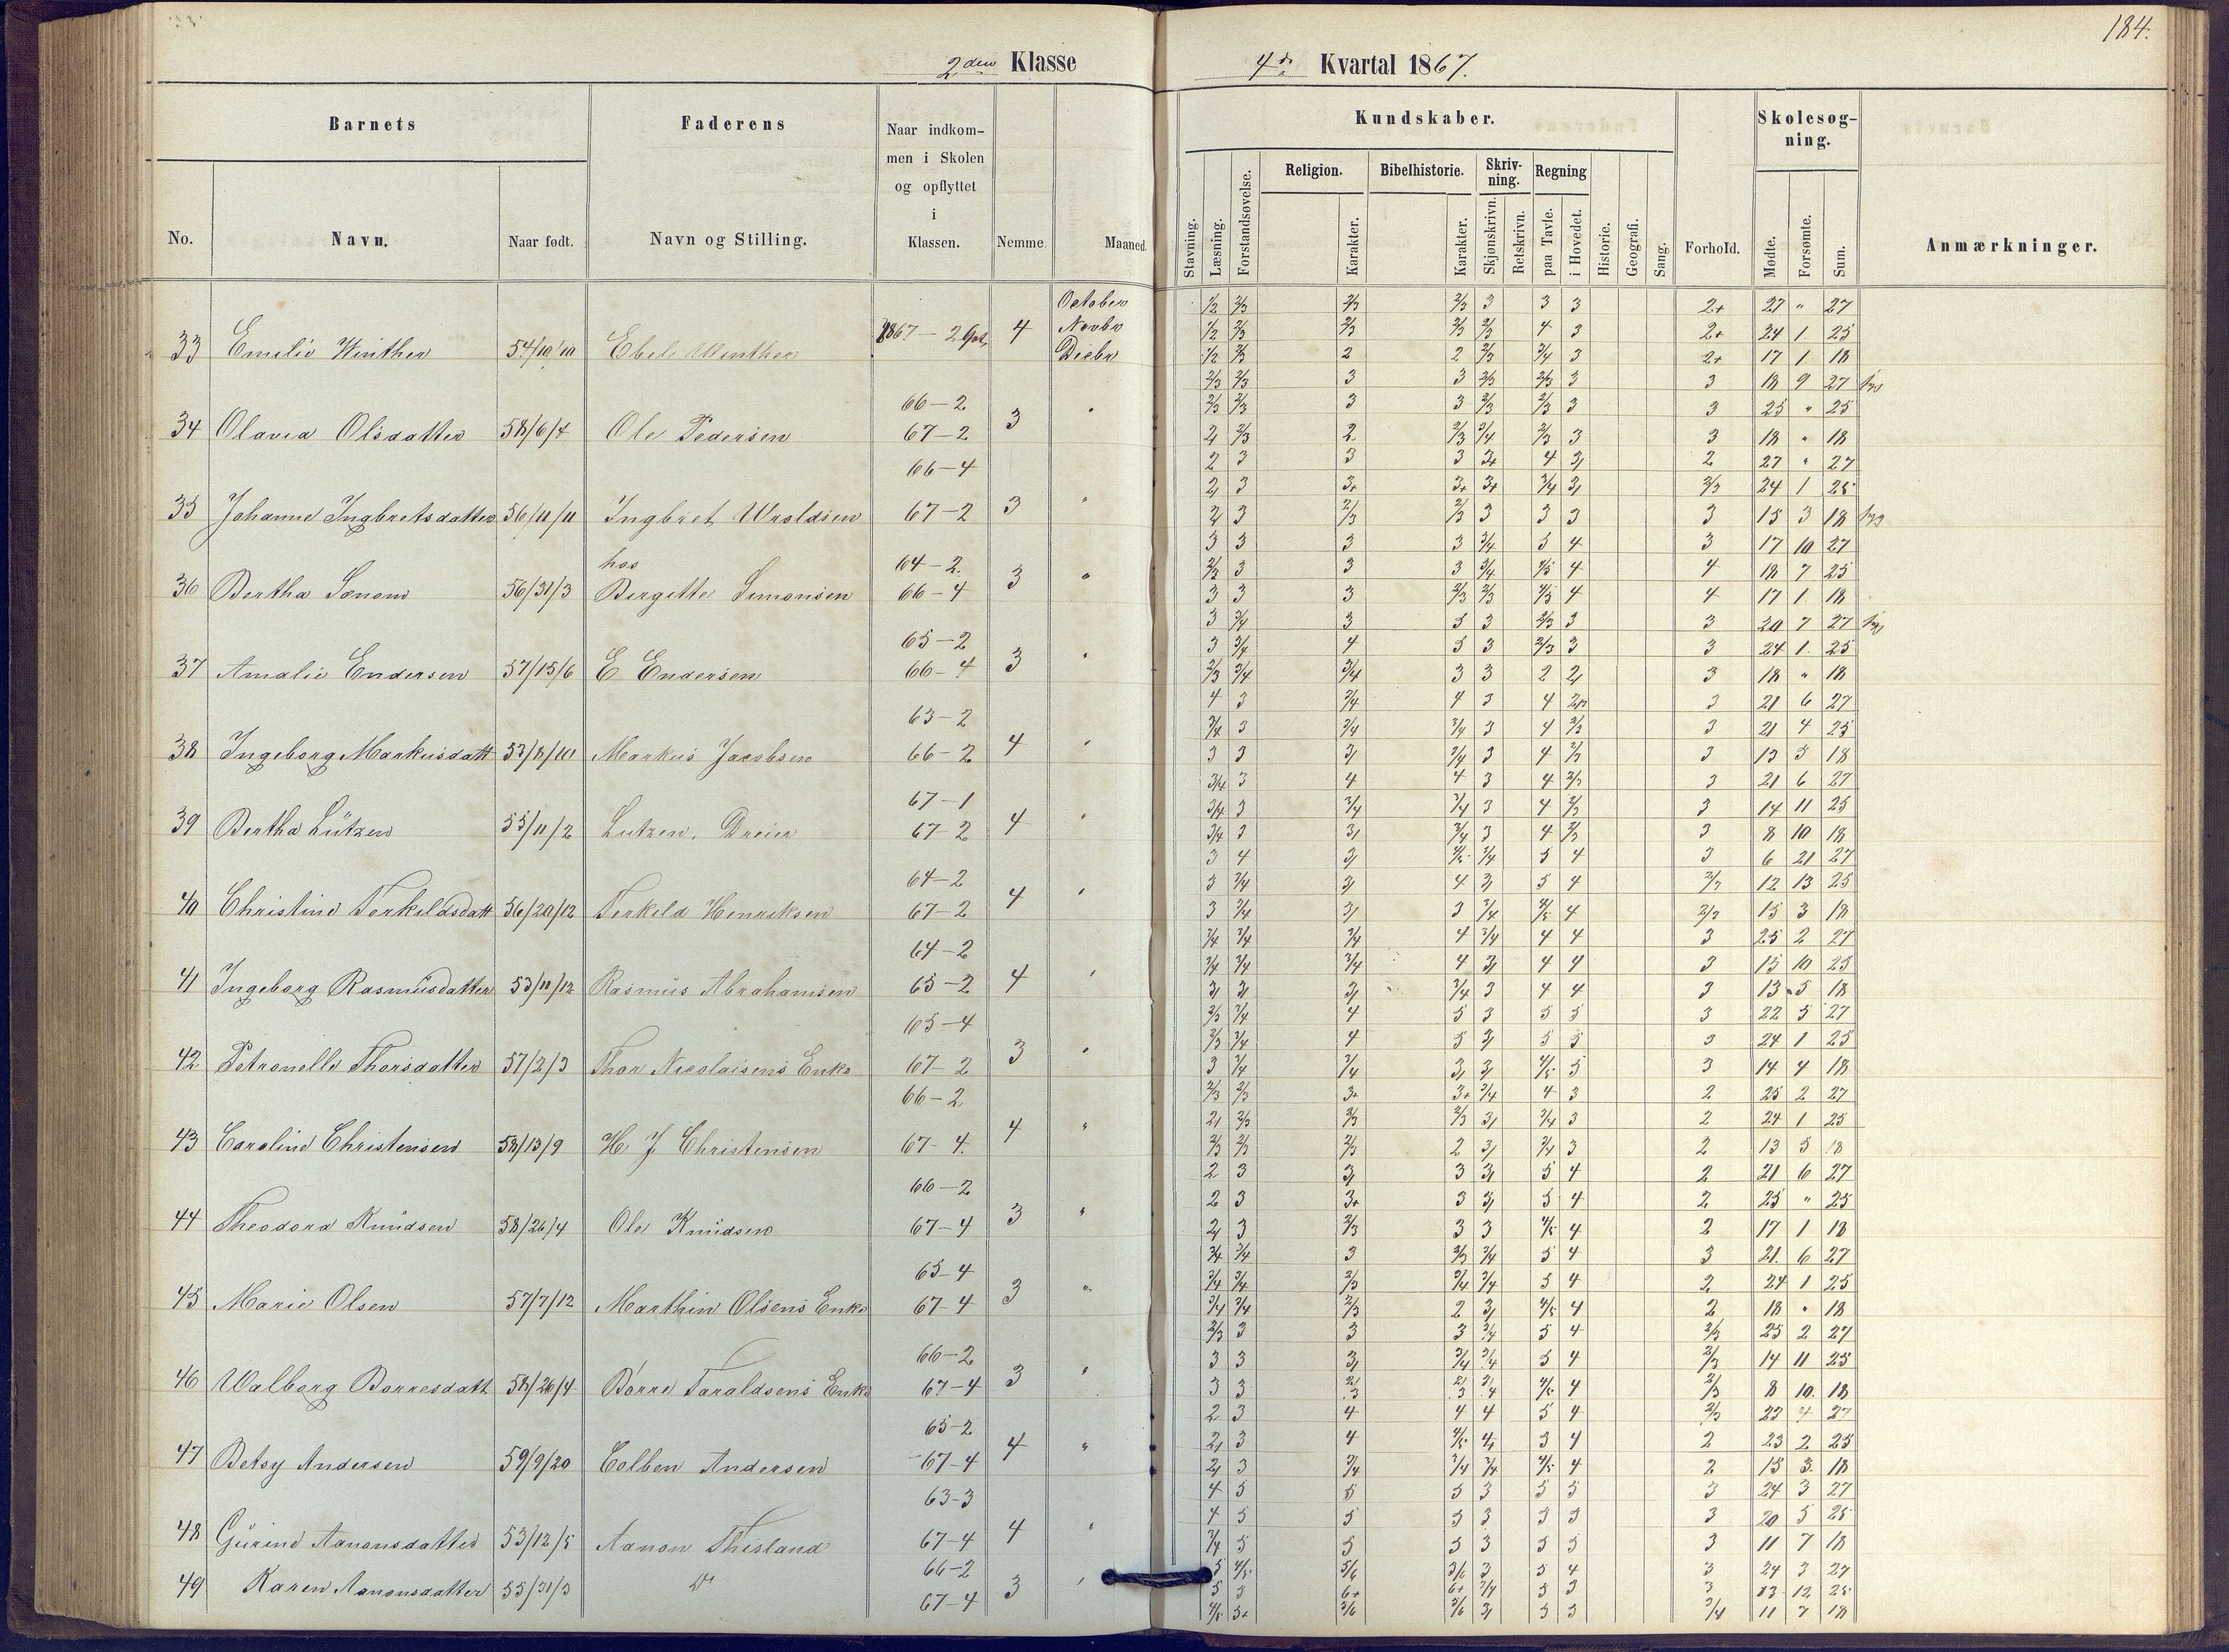 184.
2den Klasse
4de Kvartal 1867.
Barnets
Faderens
Naar indkom-
men i Skolen
og opflyttet
i
Klassen.
No.
Navn.
Naar født.
Navn og Stilling.
Nemme.
Maaned.
Kundskaber.
Stavning.
Læsning.
Forstandsøvelse.
Religion.
Karakter.
Bibelhistorie.
Karakter.
Skriv-
ning.
Skjønskrivn.
Retskrivn.
Regning
paa Tavle.
i Hovedet.
Historie.
Geografi.
Sang.
Forhold.
Skolesøg-
ning.
Mødte.
Forsømte.
Sum.
Anmærkninger.
October 1/2 2/3 2/3 2/3 3 3 3 2+ 27 " 27
33 Emilie Winther 54/10/10 Ebel Winther 1867-2 4 Novbr 1/2 2/3 2/3 2/3 2/3 4 3 2+ 24 1 25
Decbr 1/2 2/3 2 2 2/3 3/4 3 2+ 17 1 18
2/3 2/3 3 3 2/3 2/3 3 3 18 9 27
66-2 2/3 2/3 3 3 2/3 2/3 3 3 25 " 25
34 Olavia Olsdatter 58/6/4 Ole Pedersen 67-2 3 18 " 18
66-4 2 3 3 3 3+ 4 2 27 " 27
24 1 25
35 Johanne Ingbretsdatter 56/11/11 Ingbret Uroldsen 67-2 3 3 15 3 18
hos 3 3 3 3 3/4 5 4 3 17 10 27
64-2 2/3 3 3 3 3/4 4/5 4 4 18 7 25
36 Bertha Sønom 56/31/3 Birgitte Simonsen 66-4 3 3 3 3 2/3 2/3 4/5 4 4 17 1 18
3 3/4 3 3 3 2/3 3 3 20 7 27
65-2 3 3/4 4 3 3 2/3 3 3 24 1 25
37 Amalie Endersen 57/15/6 E Endersen 66-4 3 2/3 3/4 3/4 3 3 2 3 18 " 18
4 3 3/4 4 3 4 3 21 6 27
63-2 3/4 3 3/4 3/4 3 4 2/3 3 21 4 25
38 Ingeborg Markusdatt 53/8/10 Markus Jacobsen 66-2 4 3 3 3 4 2/3 3 13 5 18
3/4 3 4 4 3 4 2/3 3 21 6 27
67-1 3/4 3 3/4 3/4 3 4 2/3 3 14 11 25
39 Bertha Lützen 55/11/2 Lutzen. Dreier 67-2 4 3/4 3 3/4 3 4 2/3 3 8 10 18
3 4 5 4 3 6 21 27
64-2 3 3/4 4 5 4 2/3 12 13 25
40 Christine Terkildsdatt 56/20/12 Terkild Henriksen 67-2 4 3 3/4 3 3/4 4/5 4 2/3 15 3 18
64-2 3/4 3/4 3/4 4 3/4 4 4 3 25 2 27
3/4 3/4 3/4 4 4 4 3 15 10 25
41 Ingeborg Rasmusdatter 53/11/12 Rasmus Abrahamsen 65-2 4 3/4 3 4 4 3 13 5 18
2/3 3/4 4 5 3 5 5 3 22 5 27
65-4 2/3 3/4 4 5 5 5 3 24 1 25
42 Petronelle Thorsdatter 57/2/3 Thor Nicolaisens Enke 67-2 3 3 3/4 3/4 4/5 5 3 14 4 18
66-2 2/3 2/3 3+ 3+ 3/4 4 3 2 25 2 27
2/3 2/3 2/3 3/4 3 2 24 1 25
43 Caroline Christensen 58/13/9 H J Christensen 67-4. 4 2/3 2/3 2/3 2 3/4 3 2 13 5 18
66-2 2 3 3 5 4 2 21 6 27
2 3 3+ 3 5 4 2 25 " 25
44 Theodora Knudsen 58/26/4 Ole Knudsen 67-4 3 3 2/3 3 3 4/5 4 2 17 1 18
3/4 3/4 3 2/3 3/4 5 4 3 21 6 27
65-4 3/4 3/4 2/3 3/4 3/4 5 4 2 24 1 25
45 Marie Olsen 57/7/12 Marthin Olsens Enke 67-4 3 3/4 3/4 2/3 2 4/5 4 2 18 " 18
2/3 3 3 3 3/4 5 4 2/3 25 2 27
66-2 3 3 3/4 3/4 5 4 2/3 14 11 25
46 Walborg Borresdatt 58/26/4 Börre Taraldsens Enke 67-4 3 3 3 2/3 2/3 3/4 4/5 4 2/3 8 10 18
2 3 4 4 4 5 4 2/3 23 4 27
65-2 3 4 4/5 4 2 23 2 25
47 Betsy Andersen 59/9/20 Colben Andersen 67-4 4 3 3/4 3/4 3/4 4/5 4 2 15 3 18
63-3 4 5 5 5 3 5 5 3 24 3 27
4 5 5 5 3 5 5 3 20 5 25
48 Gurine Aanonsdatter 53/12/5 Aanon Thisland 67-4 4 3/4 5 5 5 3 5 5 3 11 7 18
66-2 5 4/5 5/6 5/6 3 5 4 3 24 3 27
49 Karen Aanonsdatter 55/31/3 Do 67-4 3 5 5 6+ 6+ 3/4 5 5 3 13 12 25
4/5 5+ 5/6 5/6 5 5 3/4 11 7 18